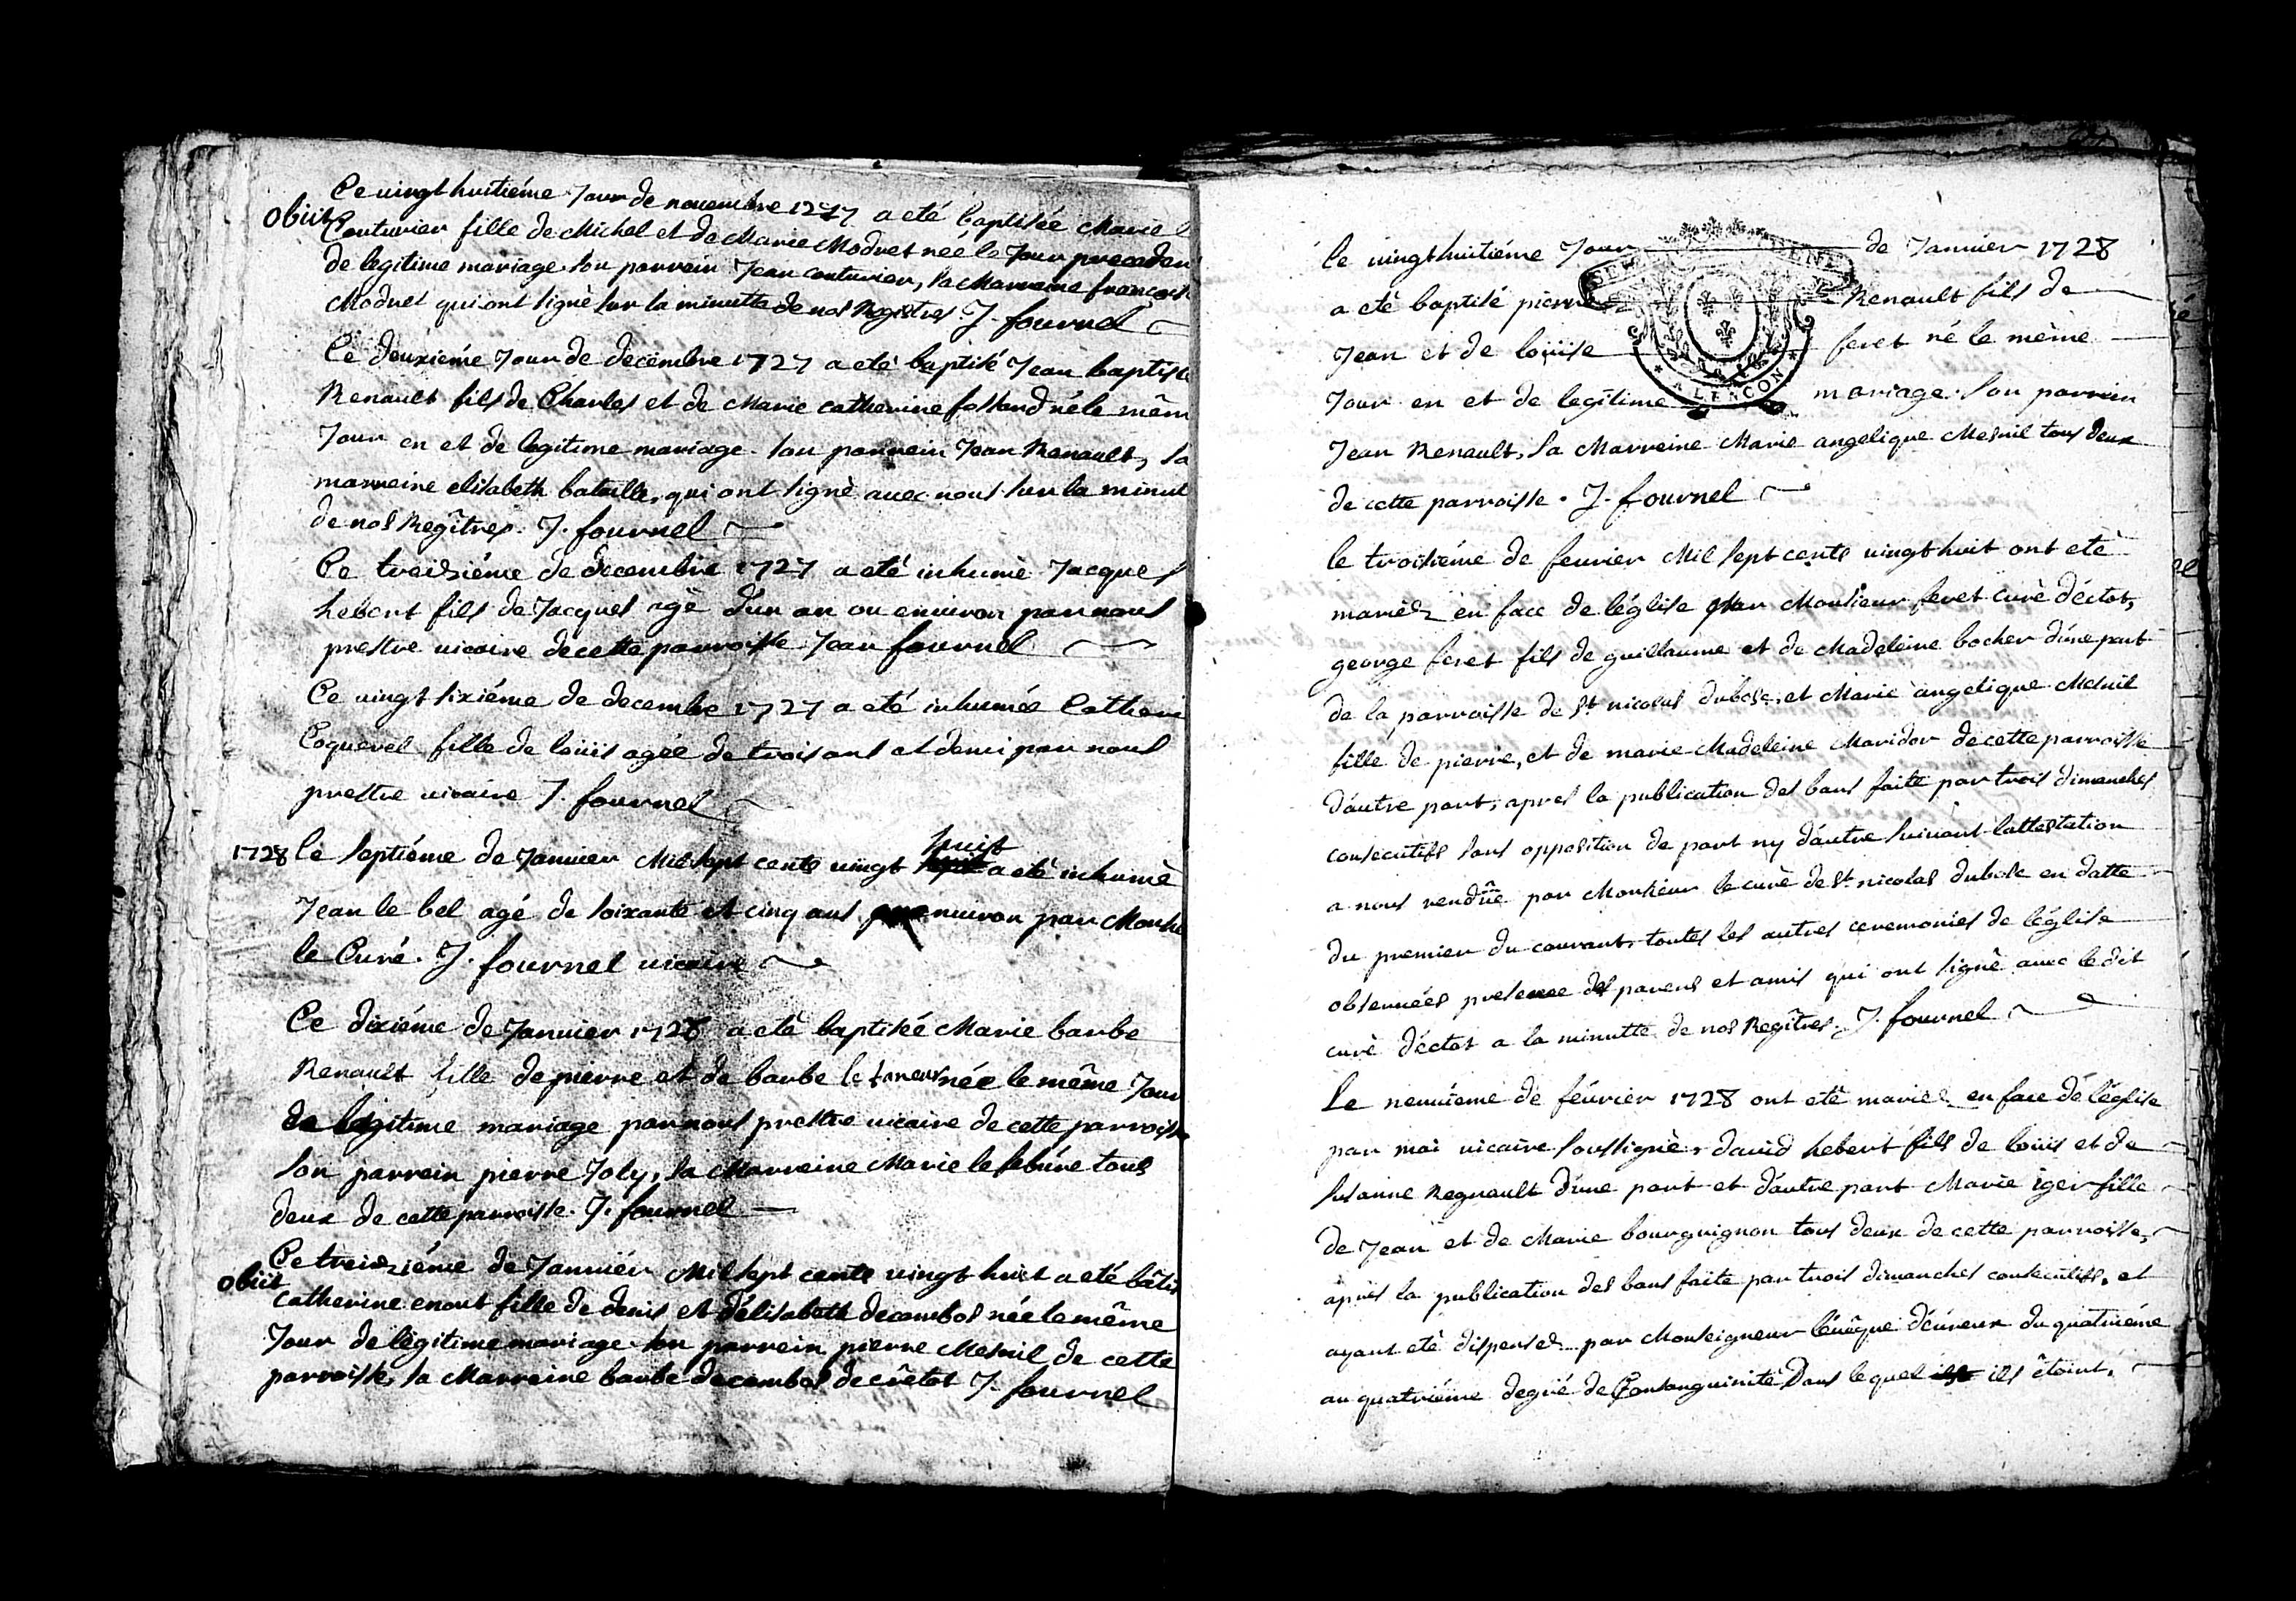 Ce vingt huitiéme Jour de novembre 1727 a eté baptisée Marie
obiit
Couturier fille de Michel et de Marie Modret née le Jour preceden
de legitime mariage. son parrein Jean couturier, sa Marreine francoise
Modret qui ont signé sur la minutte de nos Registres J. fournel
Ce deuxiéme Jour de decembre 1727 a eté baptisé Jean baptiste
Renault fils de Charles et de Marie catherine fossard né le mêm
Jour en et de legitime mariage. son parrein Jean Renault, sa
marreine elisabeth bataille, qui ont signè avec nous sur la minut
de nos Regîtres. J. fournel
Ce treiziéme de decembre 1727 a eté inhumè Jacques
hebert fils de Jacques agé d'un an ou environ par nous
prestre vicaire de cette parroisse Jean fournel
Ce vingt sixiéme de decembre 1727 a eté inhumée Catheri
Coquerel fille de loüis agée de trois ans et demi par nous
prestre vicaire J. fournel
1728 le septiéme de Janvier Mil sept cents vingt huit a eté inhumè
Jean le bel agé de soixante et cinq ans environ par Monsi
le Curé. J. fournel vicaire
Ce dixiéme de Janvier 1728 a eté baptisée Marie barbe
Renault fille de pierre et de barbe née le même Jour
de legitime mariage par nous prestre vicaire de cette parroisse
son parrein pierre Joly, sa Marreine Marie le febure tous
deux de cette parroisse. J. fournel
Ce treiziéme de Janvier Mil sept cents vingt huit a eté bâtis
obiit
catherine enout fille de denis et d'elisabeth decambos née le même
Jour de legitime mariage son parrein pierre Mesnil de cette
parroisse, sa Marreine barbe decambos de crêtot J. fournel
le vingthuitiéme Jour de Janvier 1728
a eté baptisé pierre Renault fils de
Jean et de loüise feret né le même
Jour en et de legitime mariage. son parrein
Jean Renault, sa Marreine Marie angelique Mesnil tous deux
de cette parroisse. J. fournel
ALENCON
le troisiéme de fevrier Mil sept cents vingt huit ont eté
mariéz en face de l'église par Monsieur feret curè d'éctot,
george feret fils de guillaume et de Madeleine bocher d'une part
de la parroisse de St nicolas dubosc, et Marie angelique Mesnil
fille de pierre, et de marie Madeleine Maridor de cette parroisse
d'autre part, apres la publication des bans faite par trois dimanches
consecutifs sans opposition de part ny d'autre suivant lattestation
a nous rendüe par Monsieur le curè de St nicolas dubosc en datte
du premier du courant. toutes les autres ceremonies de léglise
observées presence des parens et amis qui ont signè avec le dit
curè d'éctot a la minutte de nos Regîtres. J. fournel
Le neuviéme de février 1728 ont eté mariés en face de léglise
par moi vicaire soussignè, david hebert fils de louis et de
susanne Regnault d'une part et d'autre part Marie iger fille
de Jean et de Marie bourguignon tous deux de cette parroisse,
après la publication des bans faite par trois dimanches consecutifs. et
ayant eté dispensez par Monseigneur l'évêque d'évreux du quatriéme
au quatriéme degré de Consanguinité Dans lequel ils étoint,